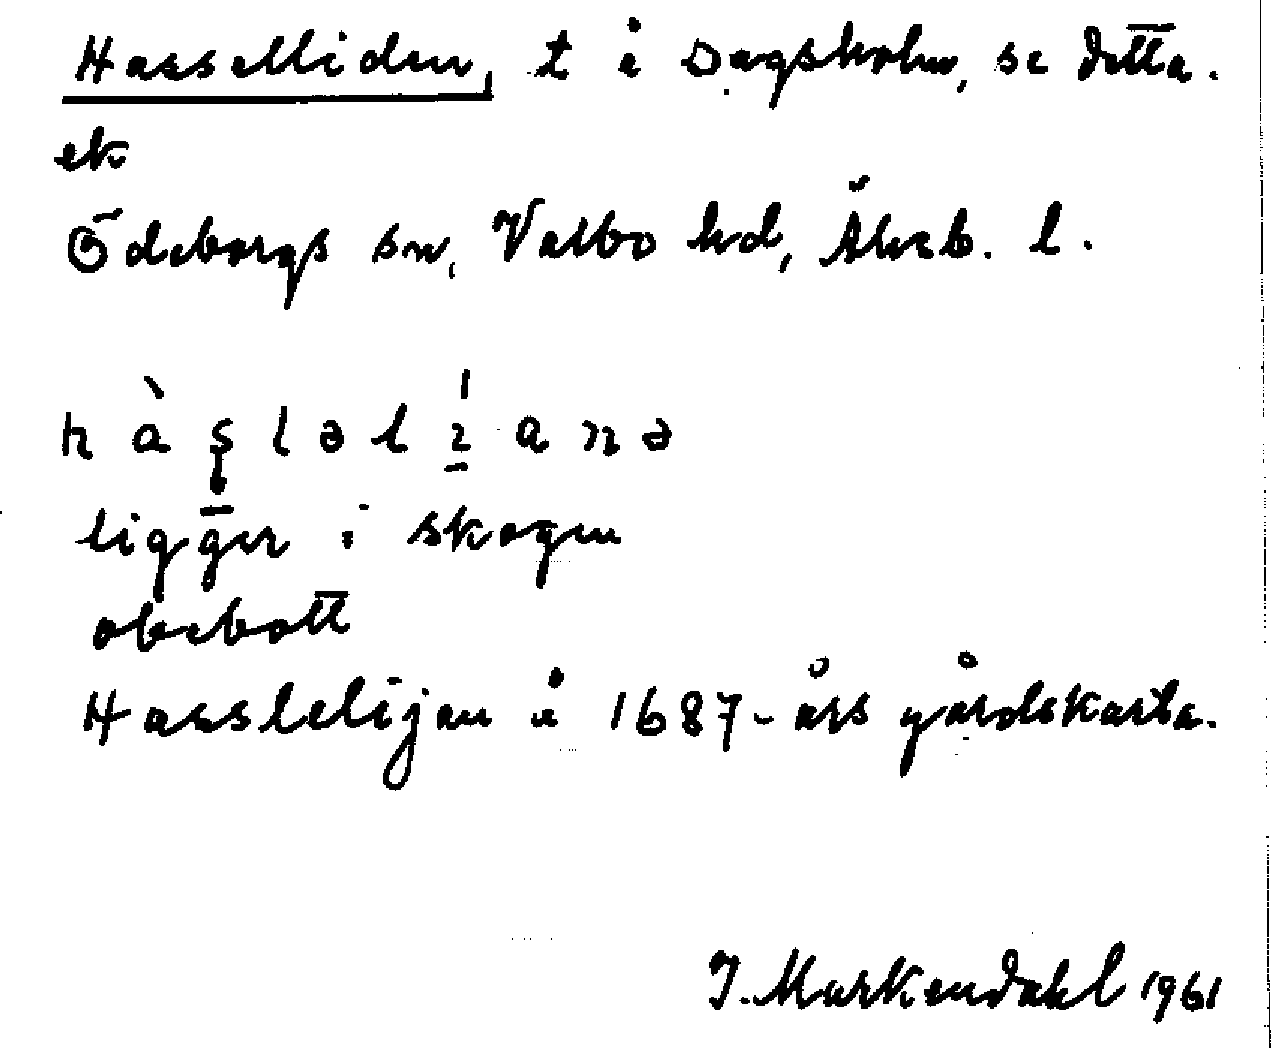 Hasselliden, t å Dagsholm, se detta.
ek
Ödeborgs sn, Valbo hd, Älvsb. l.
hàşlələɩ́anə
ligger i skogen
obebott
Hasslelijan å 1687-års gårdskarta.
J. Markendahl 1961